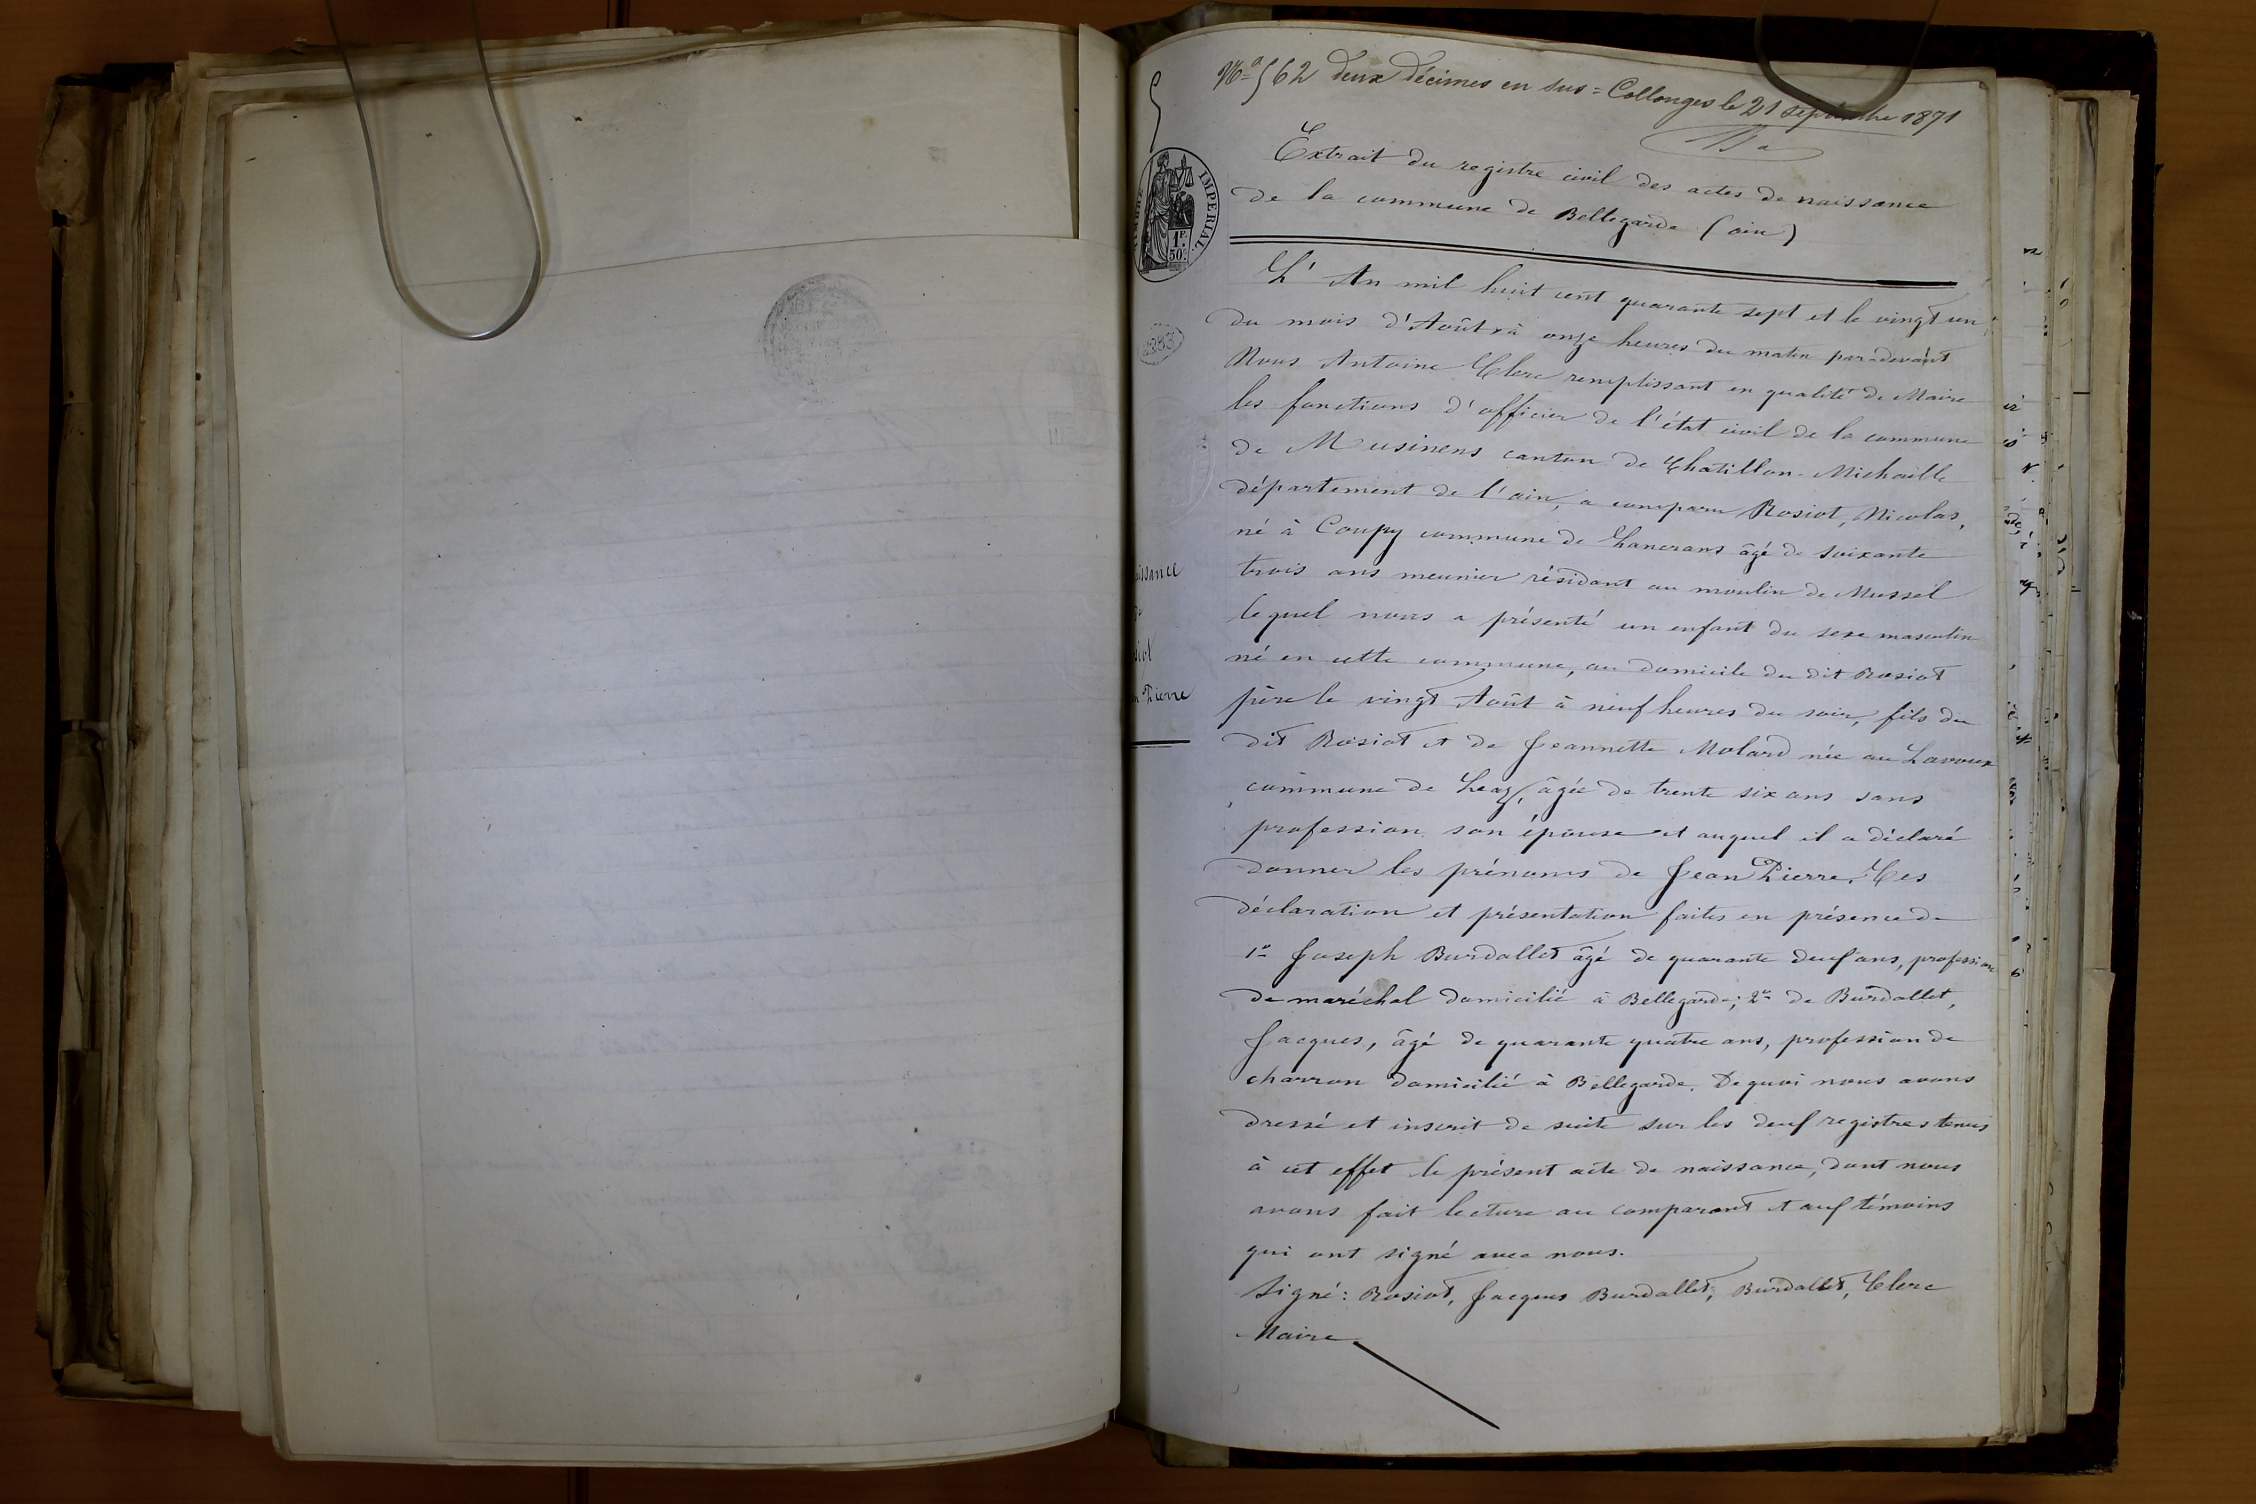 562 deux décimes en sus = Collonges le 21 septembre 1871
Extrait du registre civil des actes de naissance
de la commune de Bellegarde (ain)
IMPERIAL
1F.
50c.
L'An mil huit cent quarante sept et le vingt un
du mois d'Août à onze heures du matin par-devant
Nous Antoine Clerc remplissant en qualité de Maire
les fonctions d'officier de l'état civil de la commune
de Musinens canton de Chatillon-Michaille
département de l'ain, a comparu Rosiot, Nicolas,
né à Coupy commune de Lancrans âgé de soixante
trois ans meunier résidant au moulin de Mussel
lequel nous a présenté un enfant du sexe masculin
né en cette commune, au domicile du dit Rosiot
père le vingt Août à neuf heures du soir, fils du
dit Rosiot et de Jeannette Molard née au Lavoux
commune de Leaz, âgée de trente six ans sans
profession son épouse et auquel il a déclaré
donner les prénoms de Jean Pierre. Ces
déclaration et présentation faites en présence de
1º Joseph Burdallet âgé de quarante deux ans, profession
de maréchal domicilié à Bellegarde; 2º de Burdallet,
Jacques, âgé de quarante quatre ans, profession de
charron domicilié à Bellegarde. De quoi nous avons
dressé et inscrit de suite sur les deux registres tenus
à cet effet le présent acte de naissance, dont nous
avons fait lecture au comparant et aux témoins
qui ont signé avec nous.
Signé: Rosiot, Jacques Burdallet, Burdallet, Clerc
Maire
issance
siot
n Pierre